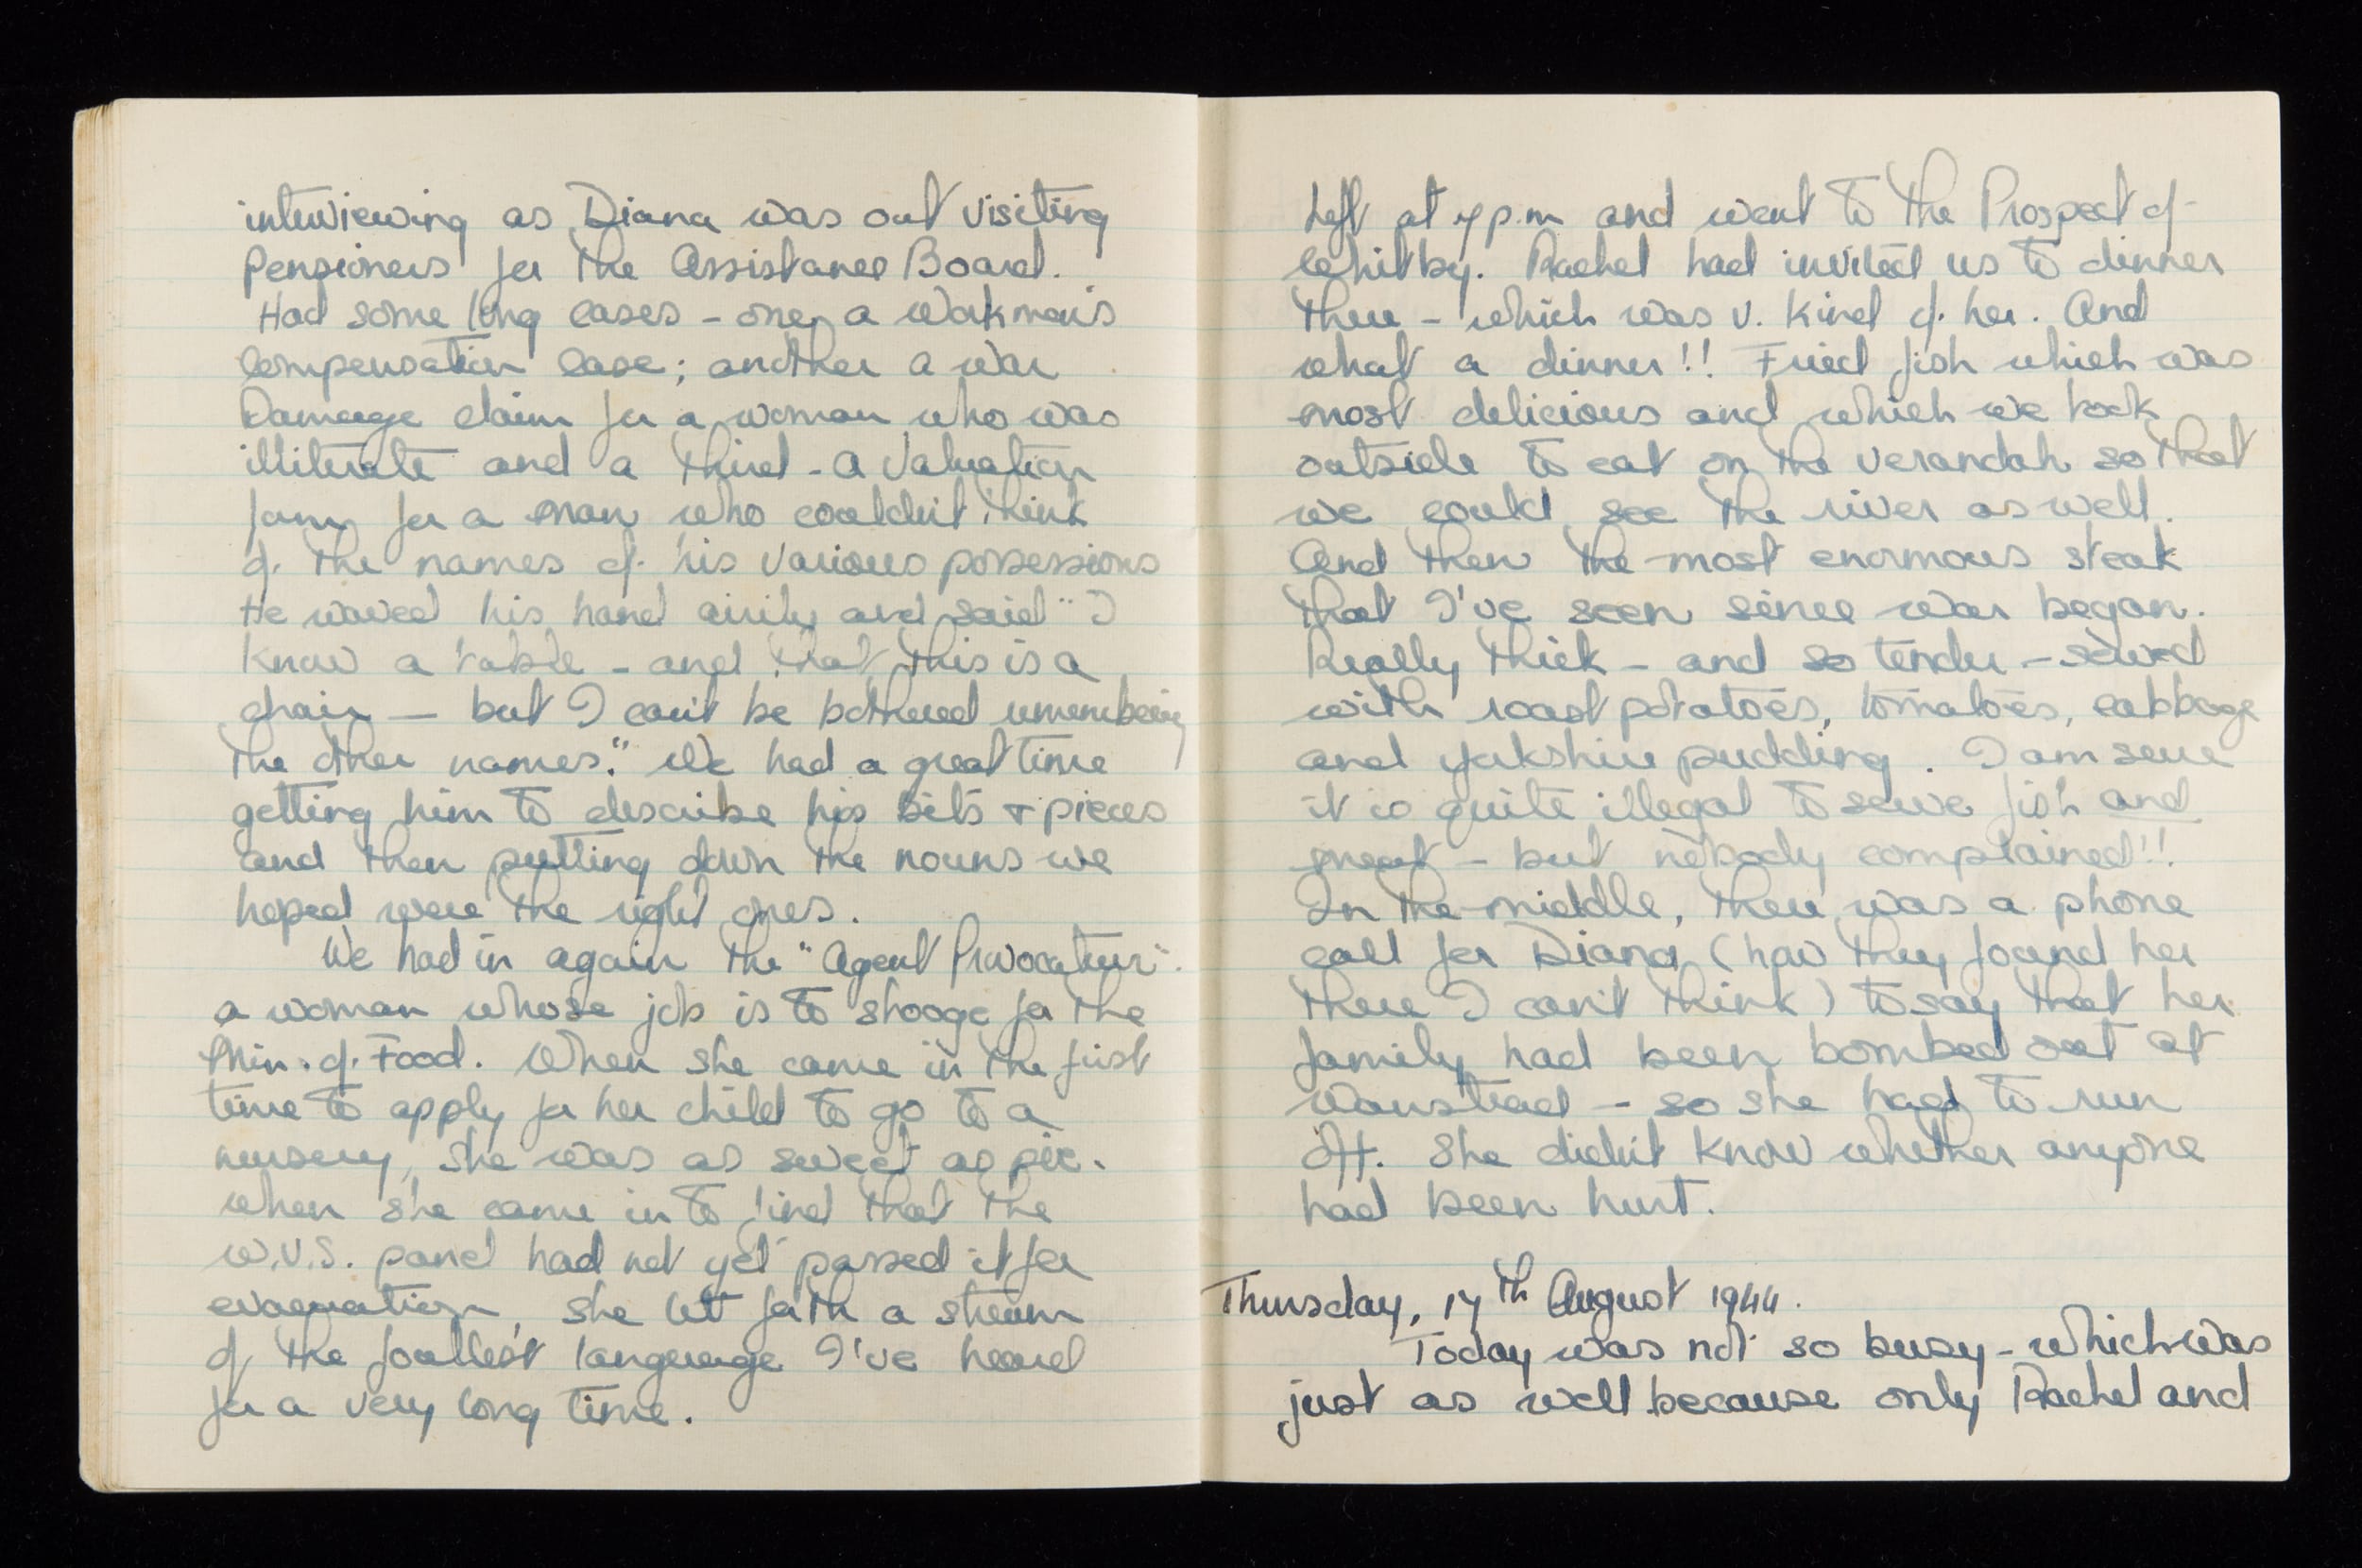 interviewing as Diana was out visiting
Pensioners for the Assistance Board.
Had some long cases - one, a Workman's
Compensation Case; another a War
Damage claim for a woman who was
illiterate and a third - a Valuation
form for a man who couldn't think
of the names of his various possessions
He waved his hand airily and said "I
know a table - and that this is a
chair — but I can't be bothered remembering
the other names." We had a great time
getting him to describe his bits + pieces
and then putting down the nouns we
hoped were the right ones.
We had in again the "Agent Provocateur".
a woman whose job is to stooge for the
Min. of. Food. When she came in the first
time to apply for her child to go to a
nursery, she was as sweet as pie.
When she came in to find that the
W.V.S. panel had not yet passed it for
evacuation, she let forth a stream
of the foullest language I've heard
for a very long time.
Left at 7 p.m and went to the Prospect of
Whitby. Rachel had invited us to dinner
there - which was v. kind of her. And
what a dinner!! Fried fish which was
most delicious and which we took
outside to eat on the verandah so that
we could see the river as well.
And then the most enormous steak
that I've seen since war began.
Really thick - and so tender - served
with roast potatoes, tomatoes, cabbage
and yorkshire pudding. I am sure
it is quite illegal to serve fish and
meat - but nobody complained!!
In the middle, there was a phone
call for Diana (how they found her
there I can't think) to say that her
family had been bombed out at
Wanstead - so she had to run
off. She didn't know whether anyone
had been hurt.
Thursday, 17th August 1944.
Today was not so busy - which was
just as well because only Rachel and